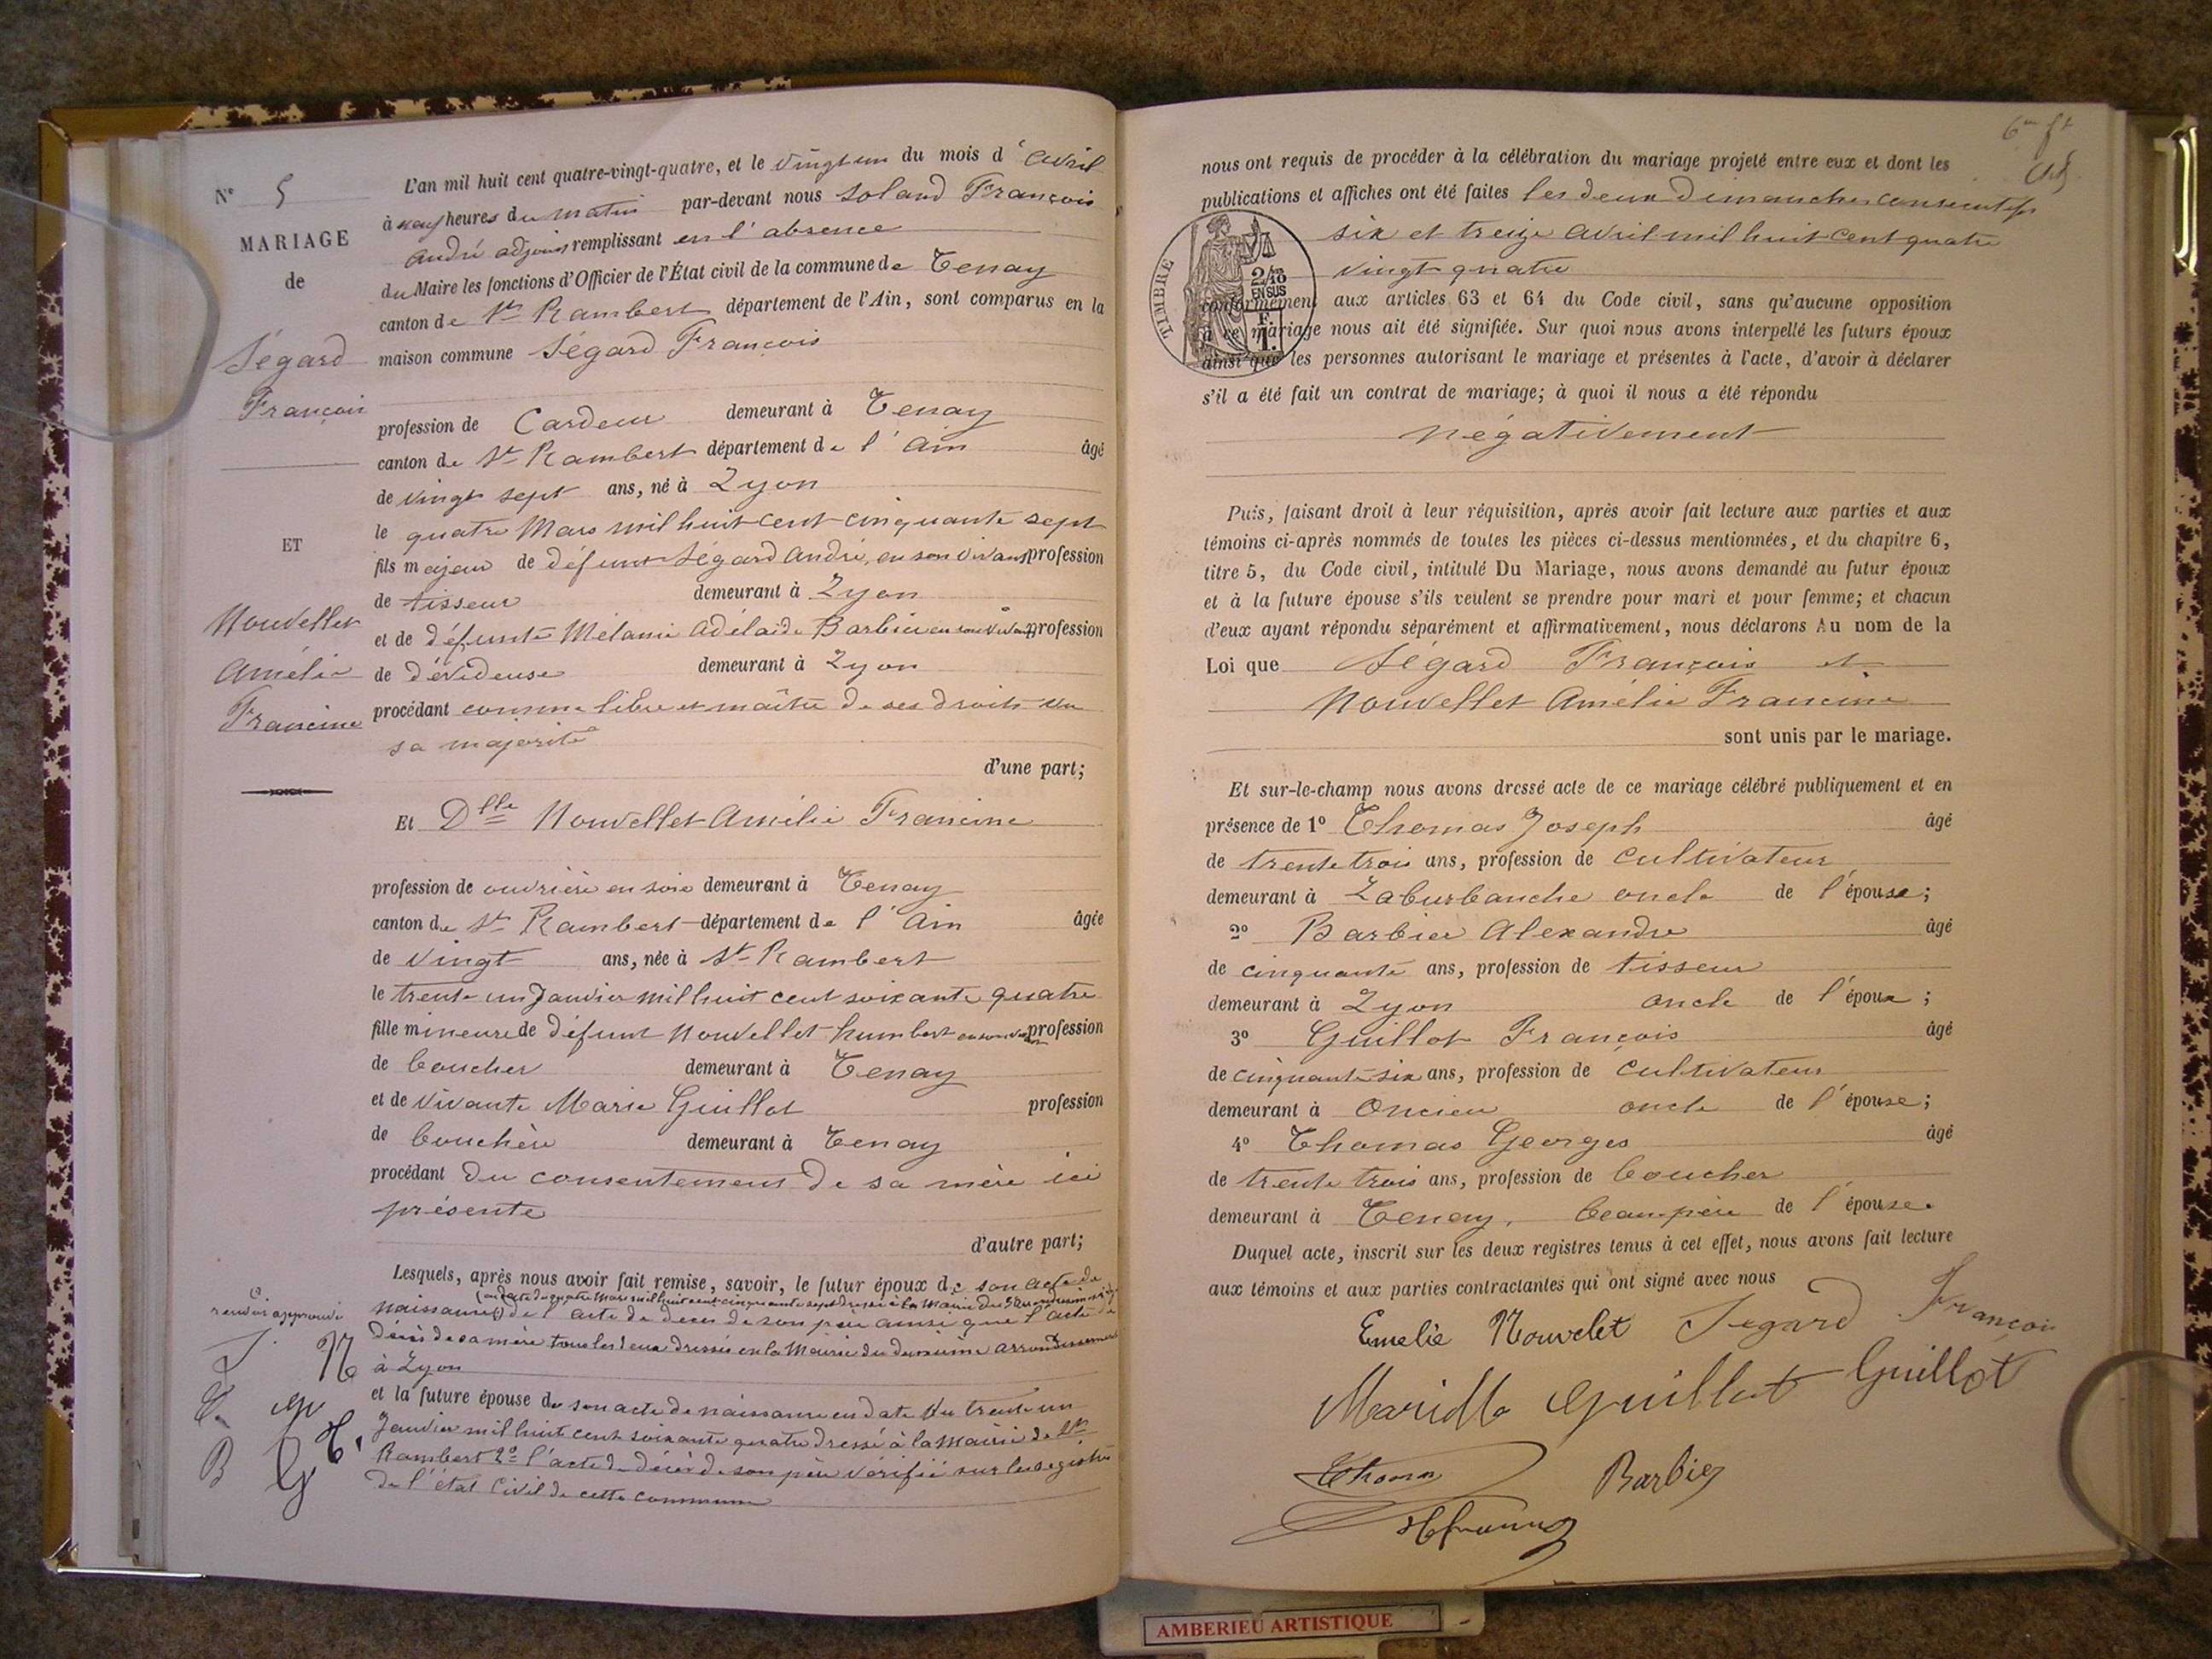 N° 5
MARIAGE
de
Ségard
François
ET
Nouvellet
Amélie
Francine
L'an mil huit cent quatre-vingt-quatre, et le vingt un du mois d'avril
à neuf heures du matin par-devant nous Soland François
André adjoint remplissant en l'absence
du Maire les fonctions d'Officier de l'État civil de la commune de Tenay
canton de St Rambert département de l'Ain, sont comparus en la
maison commune Ségard François
profession de Cardeur demeurant à Tenay
canton de St Rambert département de l'Ain âgé
de vingt sept ans, né à Lyon
le quatre Mars mil huit cent cinquante sept
fils majeur de défunt Ségard André, en son vivant profession
de tisseur demeurant à Lyon
et de défunte Mélanie Adélaïde Barbier en son vivant profession
de dévideuse demeurant à Lyon
procédant comme libre et maître de ses droits vu
sa majorité
d'une part;
Et Dlle Nouvellet Amélie Francine
profession de ouvrière en soie demeurant à Tenay
canton de St Rambert département de l'Ain âgée
de vingt ans, née à St Rambert
le trente un Janvier mil huit cent soixante quatre
fille mineure de défunt Nouvellet humbert en son vivant profession
de boucher demeurant à Tenay
et de vivante Marie Guillot profession
de bouchère demeurant à Tenay
procédant du consentement de sa mère ici
présente
d'autre part;
Lesquels, après nous avoir fait remise, savoir, le futur époux de son acte de
(en date du quatre Mars mil huit cent cinquante sept dressé à la Mairie du
naissance) de l'acte de décès de son père ainsi que l'acte de
décès de sa mère tous les deux dressés en la Mairie du deuxième arrondissement
à Lyon
et la future épouse de son acte de naissance en date du trente un
Janvier mil huit cent soixante quatre dressé à la Mairie de St
Rambert 2° l'acte de décès de son père vérifié sur les registres
de l'état civil de cette commune
renvoi approuvé
nous ont requis de procéder à la célébration du mariage projeté entre eux et dont les
publications et affiches ont été faites les deux Dimanches consécutifs
six et treize avril mil huit cent quatre
vingt quatre
TIMBRE
2/10
EN SUS
F.
1.
conformément aux articles 63 et 64 du Code civil, sans qu'aucune opposition
à ce mariage nous ait été signifiée. Sur quoi nous avons interpellé les futurs époux
ainsi que les personnes autorisant le mariage et présentes à l'acte, d'avoir à déclarer
s'il a été fait un contrat de mariage; à quoi il nous a été répondu
négativement
Puis, faisant droit à leur réquisition, après avoir fait lecture aux parties et aux
témoins ci-après nommés de toutes les pièces ci-dessus mentionnées, et du chapitre 6,
titre 5, du Code civil, intitulé Du Mariage, nous avons demandé au futur époux
et à la future épouse s'ils veulent se prendre pour mari et pour femme; et chacun
d'eux ayant répondu séparément et affirmativement, nous déclarons Au nom de la
Loi que Ségard François et
Nouvellet Amélie Francine
sont unis par le mariage.
Et sur-le-champ nous avons dressé acte de ce mariage célébré publiquement et en
présence de 1° Thomas Joseph âgé
de trente trois ans, profession de Cultivateur
demeurant à Laburbanche oncle de l'épouse;
2° Barbier Alexandre âgé
de cinquante ans, profession de tisseur
demeurant à Lyon oncle de l'époux;
3° Guillot François âgé
de cinquante six ans, profession de Cultivateur
demeurant à Oncieu oncle de l'épouse;
4° Thomas Georges âgé
de trente trois ans, profession de boucher
demeurant à Tenay, beau-père de l'épouse.
Duquel acte, inscrit sur les deux registres tenus à cet effet, nous avons fait lecture
aux témoins et aux parties contractantes qui ont signé avec nous
Emelie Nouvelet Segard François
Guillot Guillot
Thomas Barbier
AMBERIEU ARTISTIQUE